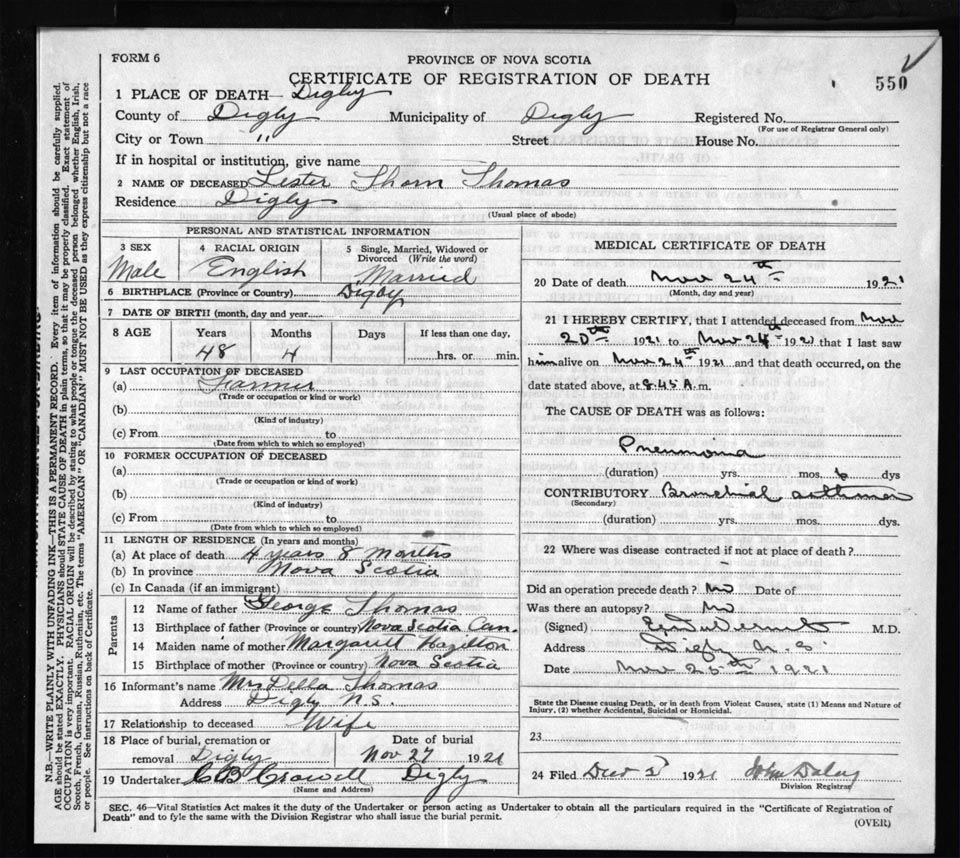 FORM 6
PROVINCE OF NOVA SCOTIA
CERTIFICATE OF REGISTRATION OF DEATH
550
1 PLACE OF DEATH— Digby
County of Digby Municipality of Digby Registered No.
(For use of Registrar General only)
City or Town " Street House No.
If in hospital or institution, give name
2 NAME OF DECEASED Lester Thorn Thomas
Residence Digby
(Usual place of abode)
PERSONAL AND STATISTICAL INFORMATION
3 SEX 4 RACIAL ORIGIN 5 Single, Married, Widowed or Divorced (Write the word)
Male English Married
6 BIRTHPLACE (Province or Country) Digby
7 DATE OF BIRTH (month, day and year)
8 AGE Years Months Days If less than one day,
48 4 hrs. or min.
9 LAST OCCUPATION OF DECEASED
(a) Farmer
(Trade or occupation or kind or work)
(b)
(Kind of industry)
(c) From to
(Date from which to which so employed)
10 FORMER OCCUPATION OF DECEASED
(a)
(Trade or occupation or kind of work)
(b)
(Kind of industry)
(c) From to
(Date from which to which so employed)
11 LENGTH OF RESIDENCE (In years and months)
(a) At place of death 4 years 8 months
(b) In province Nova Scotia
(c) In Canada (if an immigrant)
Parents
12 Name of father George Thomas
13 Birthplace of father (Province or country) Nova Scotia Can.
14 Maiden name of mother Margarett Hazelton
15 Birthplace of mother (Province or country) Nova Scotia
16 Informant's name Mrs Della Thomas
Address Digby N.S.
17 Relationship to deceased Wife
18 Place of burial, cremation or removal Digby Date of burial Nov 27 1921
19 Undertaker C B Crowell Digby
(Name and Address)
MEDICAL CERTIFICATE OF DEATH
20 Date of death Nov 24th 1921
(Month, day and year)
21 I HEREBY CERTIFY, that I attended deceased from Nov
20th 1921 to Nov 24th 1921 that I last saw
him alive on Nov 24th 1921 and that death occurred, on the
date stated above, at 8.45 A.m.
The CAUSE OF DEATH was as follows:
Pneumonia
(duration) yrs. mos. 6 dys
CONTRIBUTORY Bronchial asthma
(Secondary)
(duration) yrs. mos. dys.
22 Where was disease contracted if not at place of death?
Did an operation precede death? No Date of
Was there an autopsy? No
(Signed) M.D.
Address Digby N.S.
Date Nov 25th 1921
State the Disease causing Death, or in death from Violent Causes, state (1) Means and Nature of
Injury, (2) whether Accidental, Suicidal or Homicidal.
23
24 Filed 1921 John Daley
Division Registrar
SEC. 46—Vital Statistics Act makes it the duty of the Undertaker or person acting as Undertaker to obtain all the particulars required in the "Certificate of Registration of
Death" and to fyle the same with the Division Registrar who shall issue the burial permit.
(OVER)
N.B.—WRITE PLAINLY WITH UNFADING INK—THIS IS A PERMANENT RECORD. Every item of information should be carefully supplied.
AGE should be stated EXACTLY. PHYSICIANS should STATE CAUSE OF DEATH in plain terms, so that it may be properly classified. Exact statement of
OCCUPATION is very important. RACIAL ORIGIN will be described by stating to what people or tongue the deceased person belonged whether English, Irish,
Scotch, French, German, Russian, Ruthenian, etc. The terms "AMERICAN" OR "CANADIAN" MUST NOT BE USED as they express citizenship but not a race
or people. See instructions on back of Certificate.